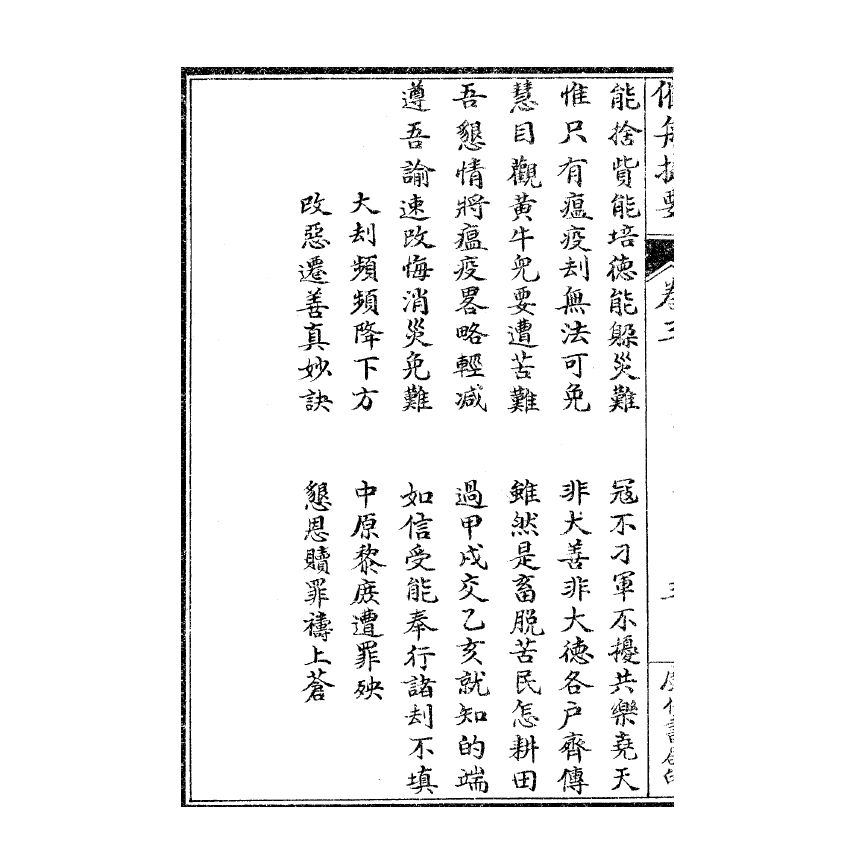 能捨貲能培德能躲災難　寇不刁軍不擾共樂堯天
惟只有瘟疫刦無法可免　非大善非大德各户齊傳
慧目觀黃牛兒要遭苦難　雖然是畜脱苦民怎耕田
吾懇情將瘟疫畧略輕减　過甲戌交乙亥就知的端
遵吾諭速改悔消災免難　如信受能奉行諸刦不填
大刦頻頻降下方　中原黎庶遭罪殃
改惡遷善真妙訣　懇恩贖罪禱上蒼